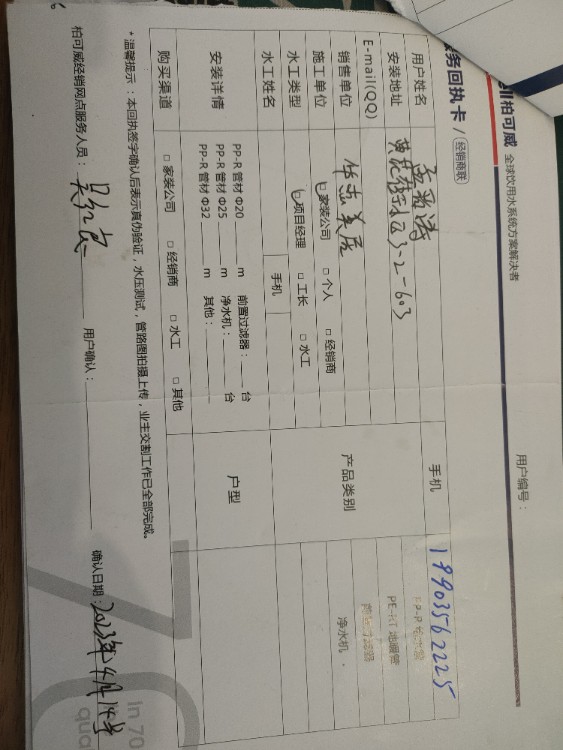 柏可威 全球饮用水系统方案解决者
用户编号：
务回执卡 / 经销商联
用户姓名
手机 19903562225
安装地址 3-2-603
E-mail(QQ)
销售单位
产品类别
PE-RT 地暖管
净水机
施工单位 家装公司 □ 个人 □ 经销商
水工类型 项目经理 □ 工长 □ 水工
水工姓名 手机
安装详情
PP-R 管材 Φ20 m 前置过滤器： 台
PP-R 管材 Φ25 m 净水机： 台
PP-R 管材 Φ32 m 其他：
户型
购买渠道 □ 家装公司 □ 经销商 □ 水工 □ 其他
*温馨提示：本回执签字确认后表示真伪验证，水压测试，管路图拍摄上传，业主交割工作已全部完成。
柏可威经销网点服务人员： 用户确认： 确认日期：2023年4月14号
in 70
qua